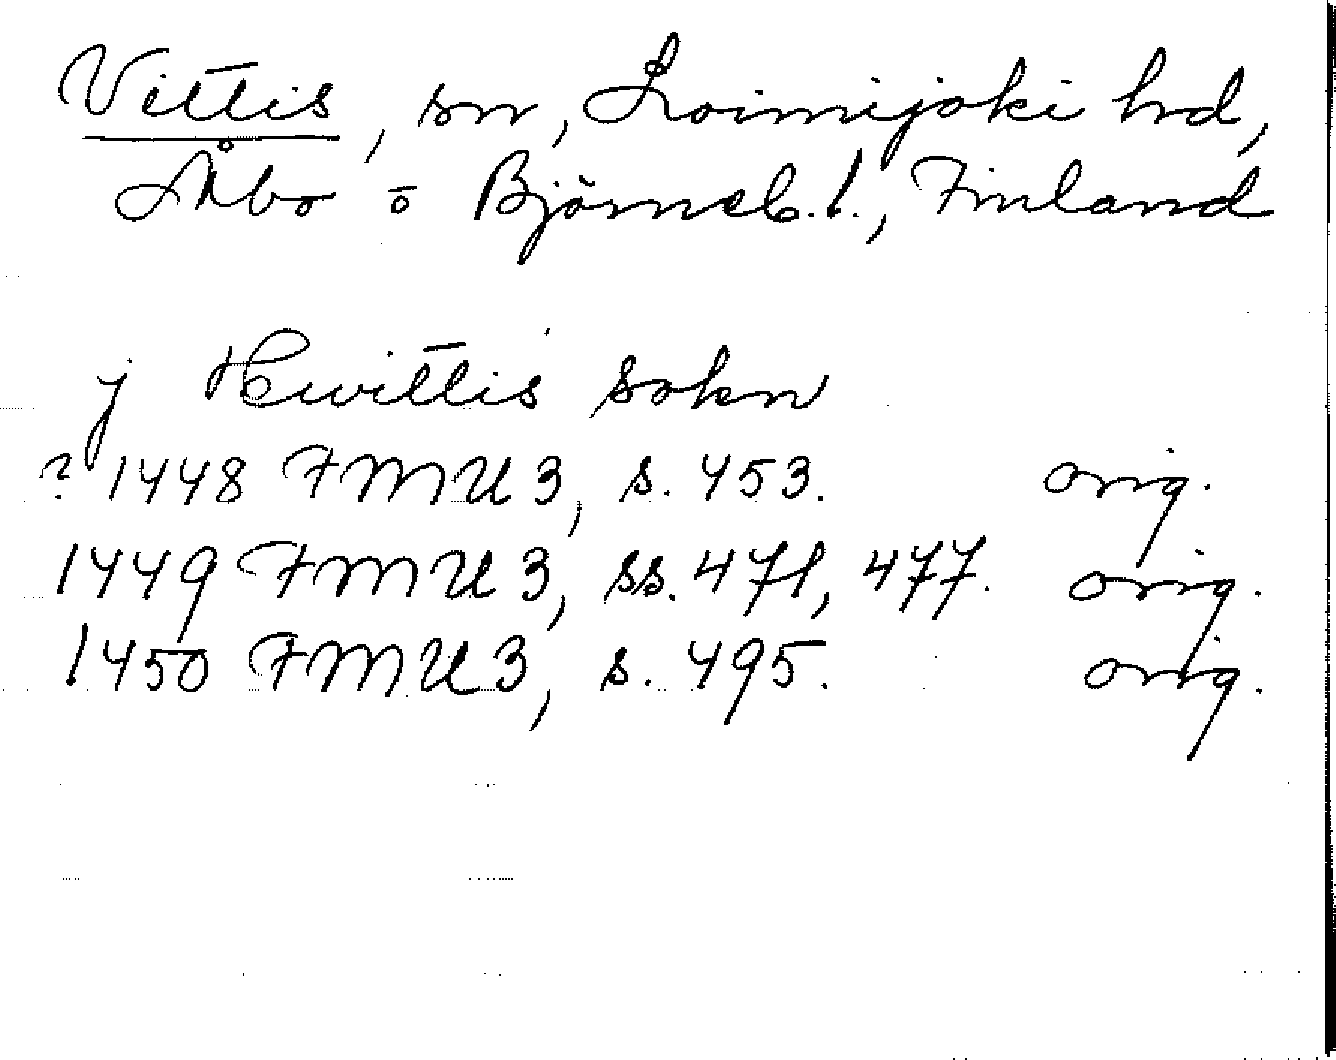 Vittis, sn, Loimijoki hd,
Åbo o Björneb. l., Finland
j Hwittis sokn
? 1448 FMU 3, s. 453. orig.
1449 FMU 3, ss. 471, 477. orig.
1450 FMU 3, s. 495. orig.